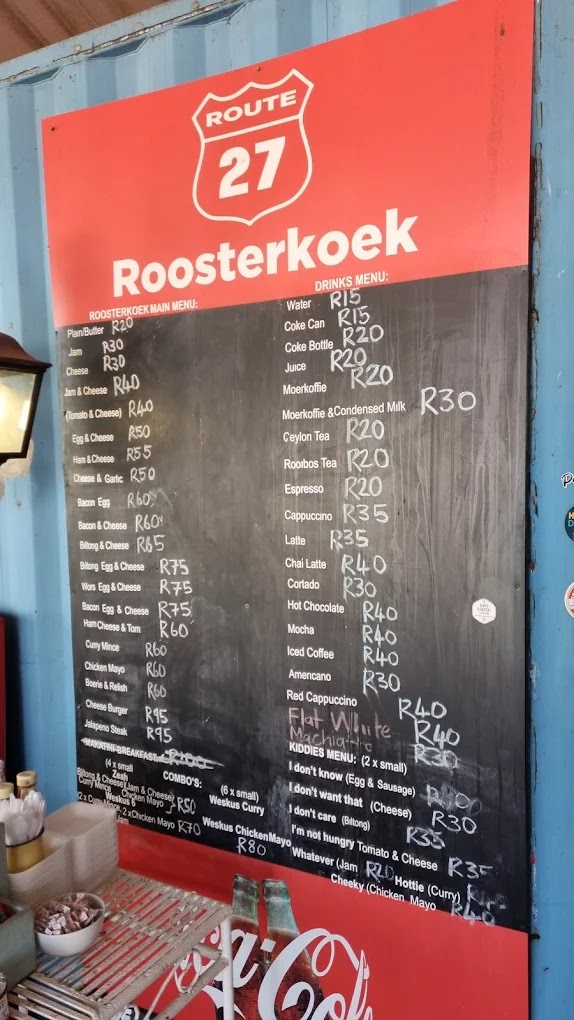 ROUTE
27
Roosterkoek
ROOSTERKOEK MAIN MENU:
Plain/Butter R20
Jam R30
Cheese R30
Jam & Cheese R40
(Tomato & Cheese) R40
Egg & Cheese R50
Ham & Cheese R55
Cheese & Garlic R50
Bacon Egg R60
Bacon & Cheese R60
Biltong & Cheese R65
Biltong Egg & Cheese R75
Wors Egg & Cheese R75
Bacon Egg & Cheese R75
Ham Cheese & Tom R60
Curry Mince R60
Chicken Mayo R60
Boerie & Relish R60
Cheese Burger R95
Jalapeno Steak R95
MAKATINI BREAKFAST R100
COMBO'S:
(4 x small)
Zeah
Biltong & Cheese) (Jam & Cheese)
Curry Mince Chicken Mayo R50
Weskus 6
(2 x Curry Mince, 2 x Chicken Mayo R70
Jam
(6 x small)
Weskus Curry
Weskus Chicken Mayo
R80
DRINKS MENU:
Water R15
Coke Can R15
Coke Bottle R20
Juice R20
Moerkoffie R20
Moerkoffie & Condensed Milk R30
Ceylon Tea R20
Rooibos Tea R20
Espresso R20
Cappuccino R35
Latte R35
Chai Latte R40
Cortado R30
Hot Chocolate R40
Mocha R40
Iced Coffee R40
Americano R30
Red Cappuccino R40
Flat White R40
R30
KIDDIES MENU: (2 x small)
I don't know (Egg & Sausage)
I don't want that (Cheese) R30
I don't care (Biltong) R35
I'm not hungry Tomato & Cheese R35
Whatever (Jam R20 Hottie (Curry)
Cheeky (Chicken Mayo R40
Coca-Cola